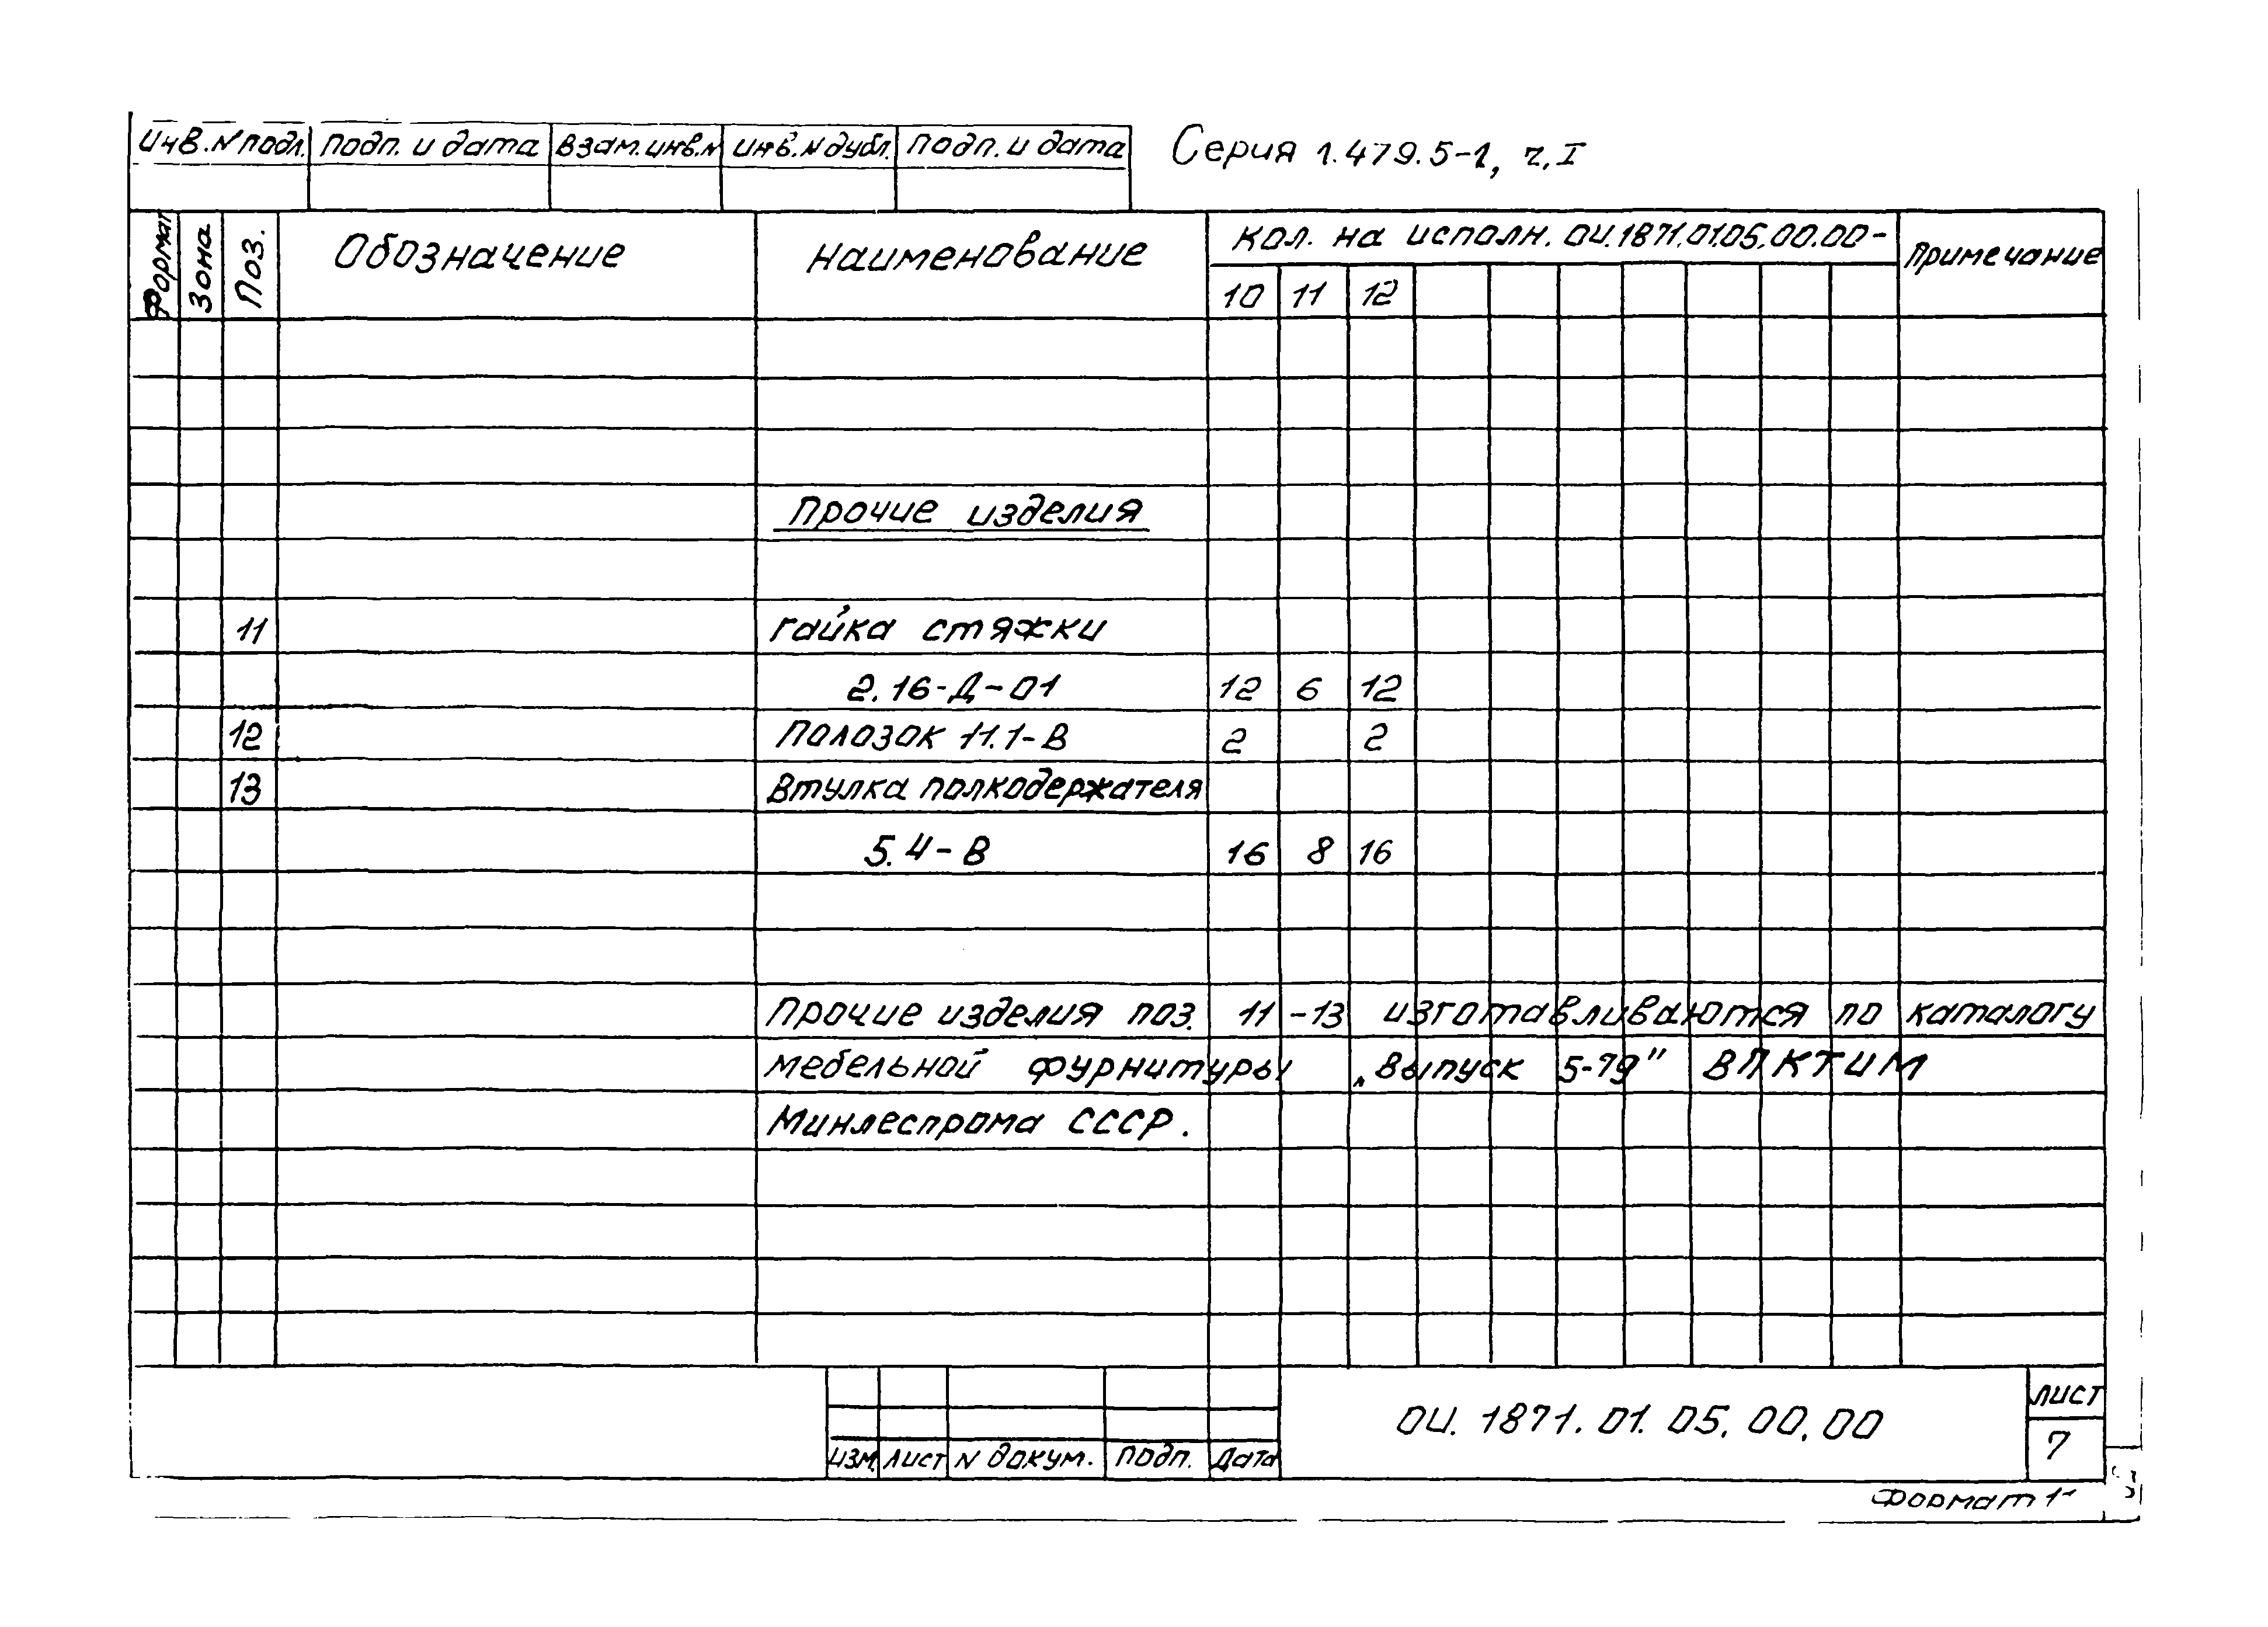 Инв. N подл. Подп. и дата Взам. инв. N Инв. N дубл. Подп. и дата Серия 1.479.5-1, ч. I
Формат Зона Поз. Обозначение Наименование Кол. на исполн. ОЦ.1871.01.05.00.00- Примечание
10 11 12
Прочие изделия
11 Гайка стяжки
2.16-Д-01 12 6 12
12 Полозок 11.1-В 2 2
13 Втулка полкодержателя
5.4-В 16 8 16
Прочие изделия поз. 11-13 изготавливаются по каталогу
мебельной фурнитуры „Выпуск 5-79" ВПКТИМ
Минлеспрома СССР.
Изм. Лист N докум. Подп. Дата
ОЦ. 1871. 01. 05. 00. 00
Лист
7
Формат